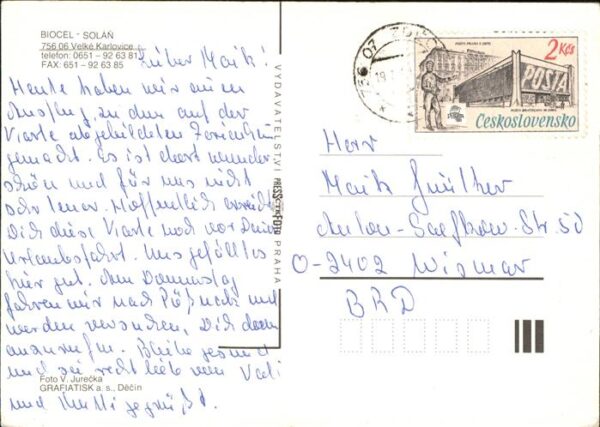 BIOCEL - SOLÁŇ
756 06 Velké Karlovice
telefon: 0651 - 92 63 81
FAX: 651 - 92 63 85
Lieber Maik!
Heute haben wir einen
Ausflug zu dem auf der
Karte abgebildeten Ferienheim
gemacht. Es ist dort wunder
schön und für uns nicht
sehr teuer. Hoffentlich erreicht
Dich diese Karte noch vor Deiner
Urlaubsfahrt. Uns gefällt es
hier gut. Am Donnerstag
fahren wir nach und
werden versuchen, Dich dann
anzurufen. Bleibe gesund
und sei recht lieb vom Vati
und Mutti gegrüßt.
Foto V. Jurečka
GRAFIATISK a. s., Děčín
VYDAVATELSTVÍ PRESSFOTO PRAHA
756 07
19.
2 Kčs
POŠTA
Československo
Herr
Maik Günther
Anton-Saefkow-Str. 50
O-2402 Wismar
BRD